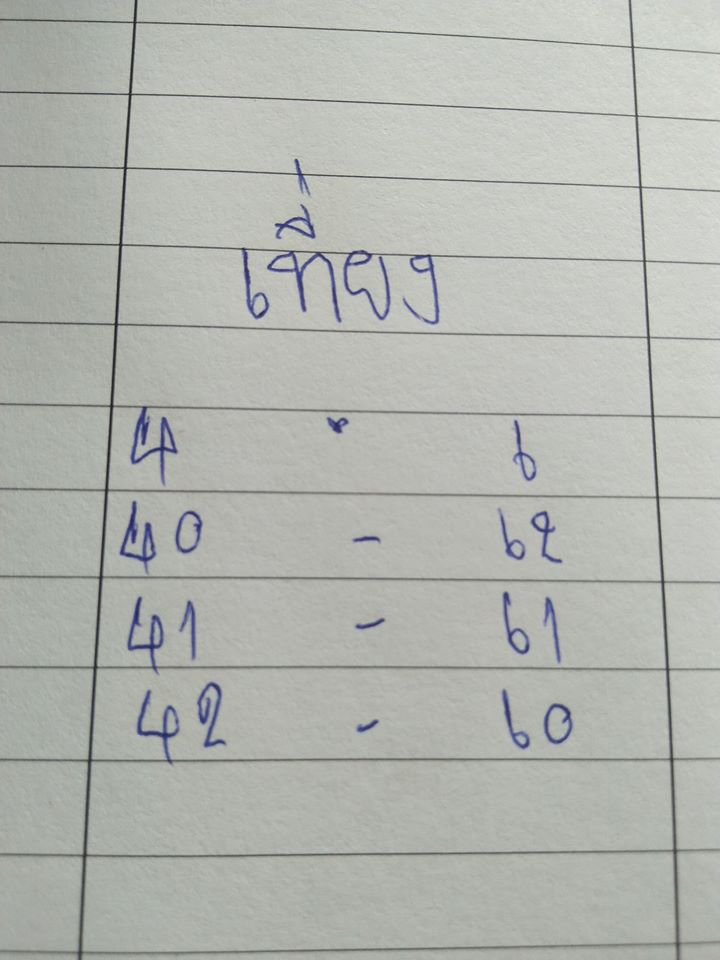 เที่ยง
4 · 6
40 - 62
41 - 61
42 - 60